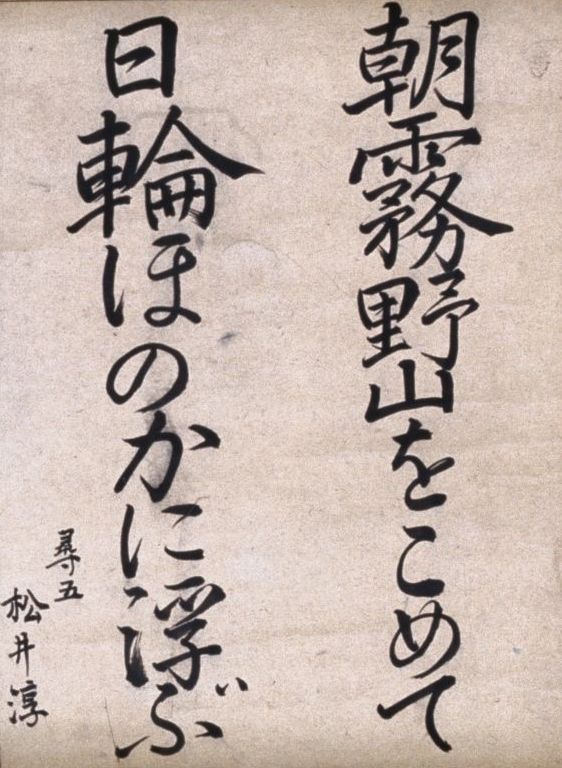 朝霧野山をこめて
日輪ほのかに浮ぶ
尋五
松井淳